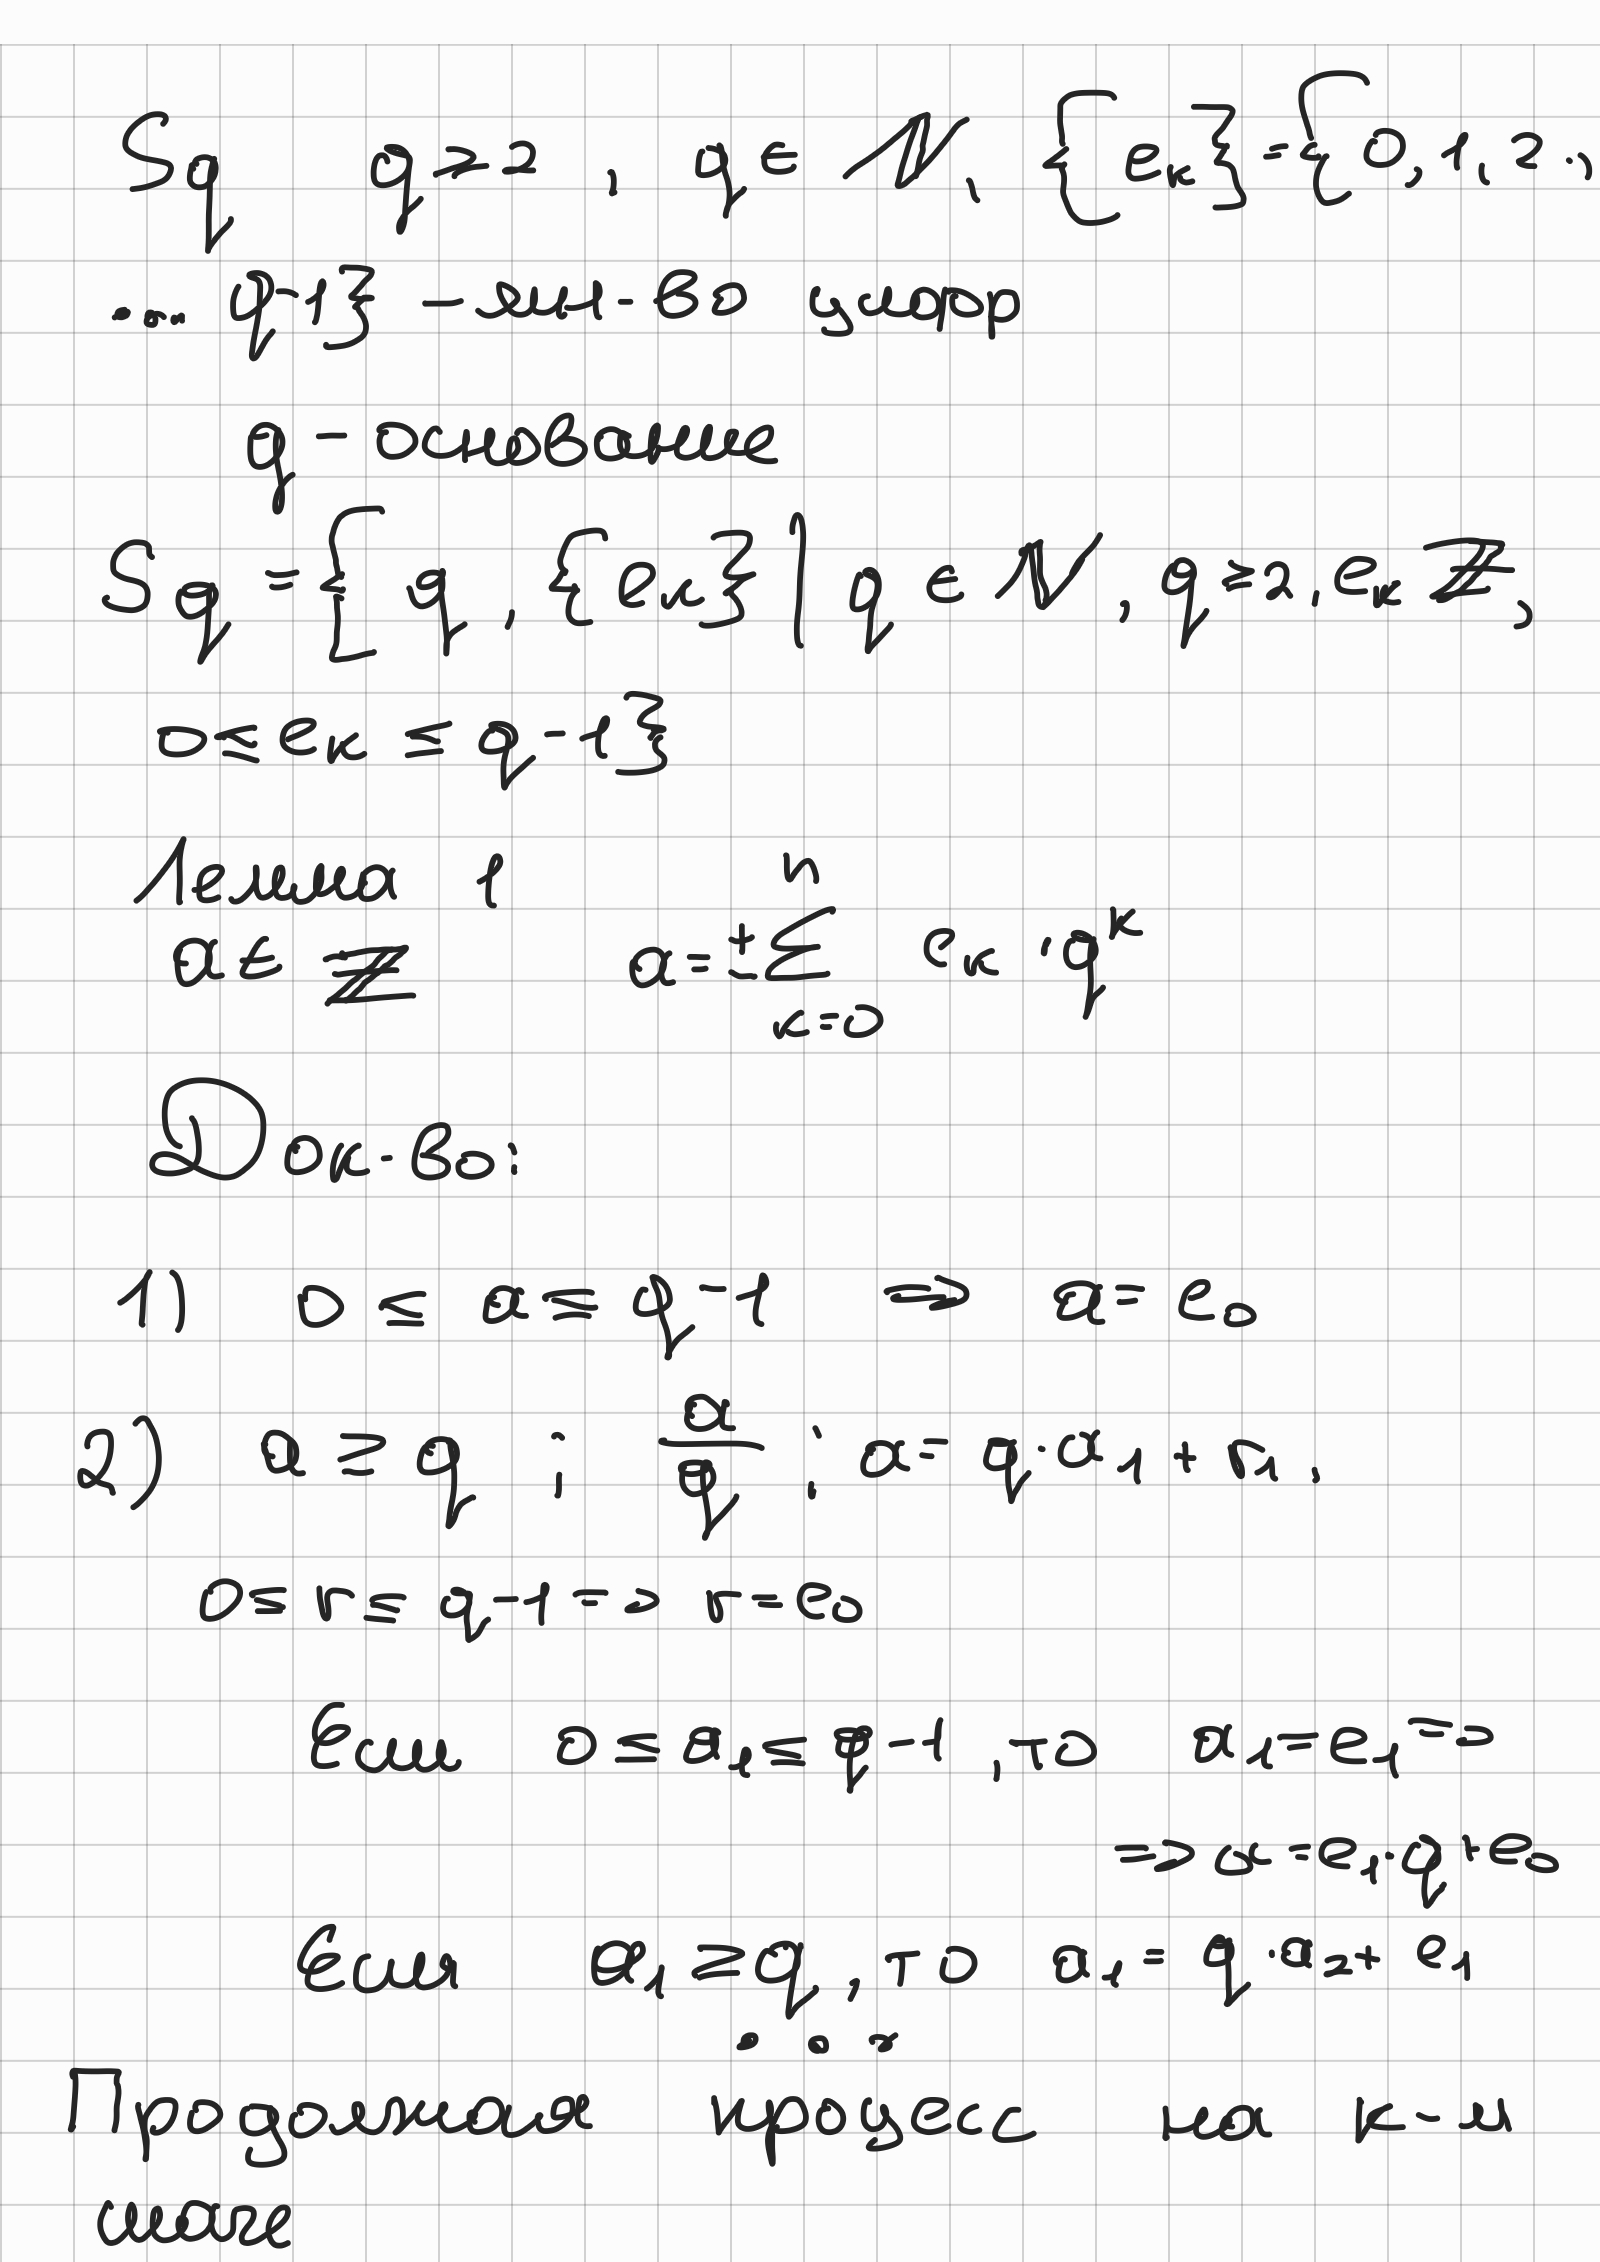 Sq q≥2, q∈ ℕ, {eₖ}={0,1,2..,
.... q-1} - мн-во цифр
q - основание
Sq={q, {eₖ} | q ∈ ℕ, q≥2, eₖ ℤ,
0≤eₖ ≤ q-1}
Лемма 1
a∈ ℤ a=±∑ₖ₌₀ⁿ eₖ ·qᵏ
Док-во:
1) 0 ≤ a ≤ q-1 ⇒ a=e₀
2) a ≥ q ; a/q ; a= q·a₁ + r₁,
0≤ r ≤ q-1 => r=e₀
Если 0 ≤ a₁ ≤ q-1, то a₁=e₁ =>
=> a=e₁·q+e₀
Если a₁ ≥q, то a₁ = q·a₂+ e₁
...
Продолжая процесс на к-м
шаге